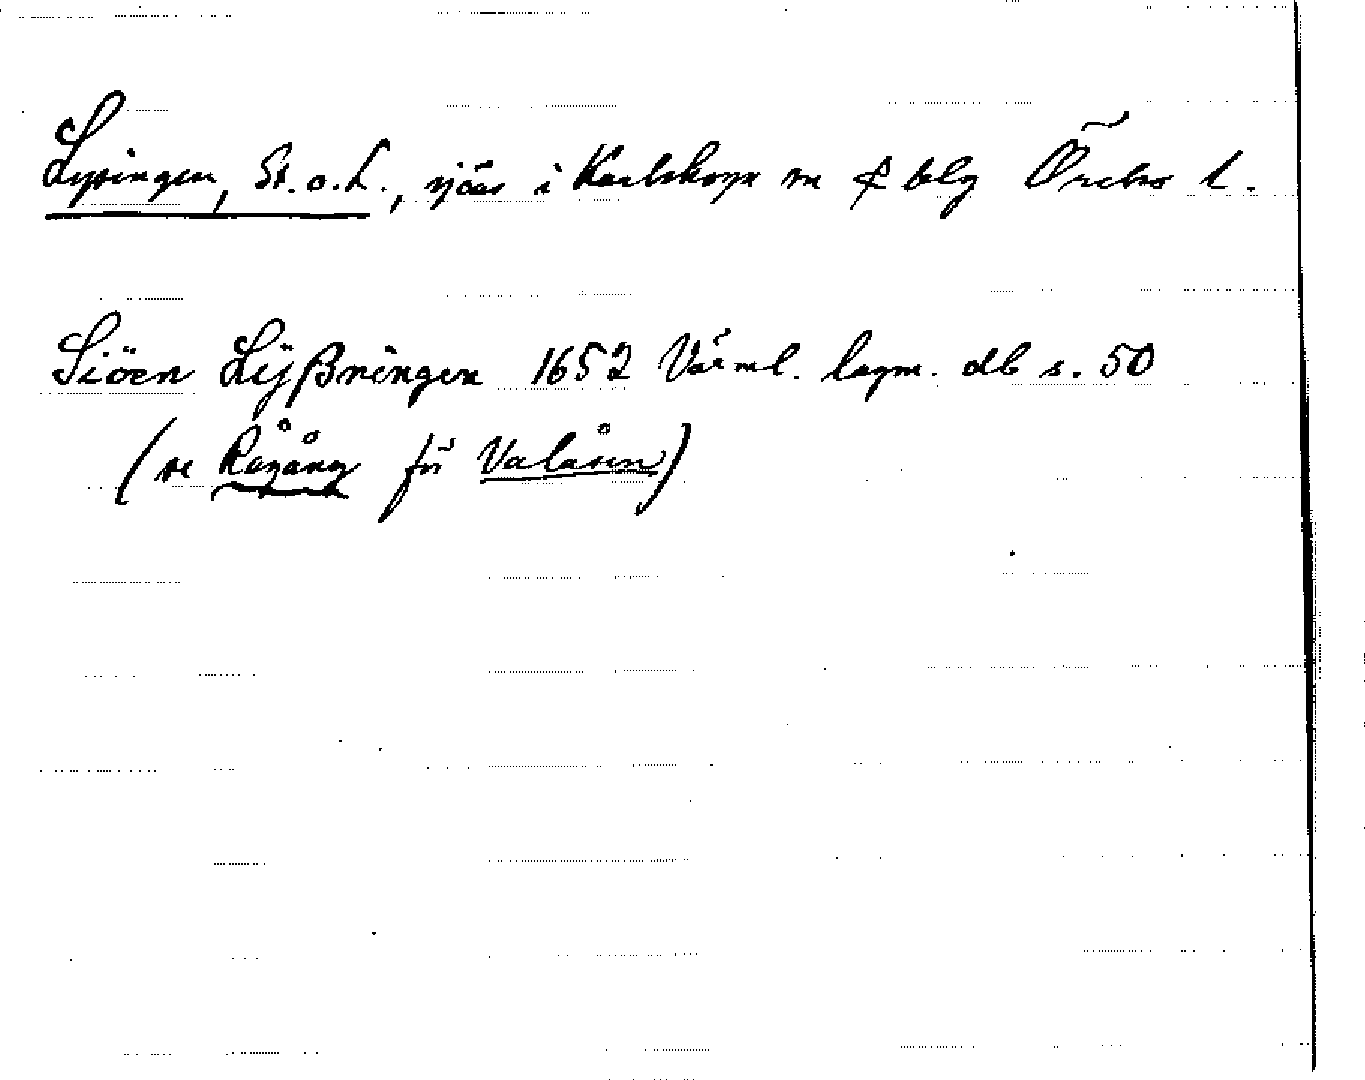 Lysingen, St. o. L., sjöar i Karlskoga sn & blg Örebro l.
Siöen Lÿßningen 1652 Värml. lagm. db s. 50
(se Rågång för Valåsen)